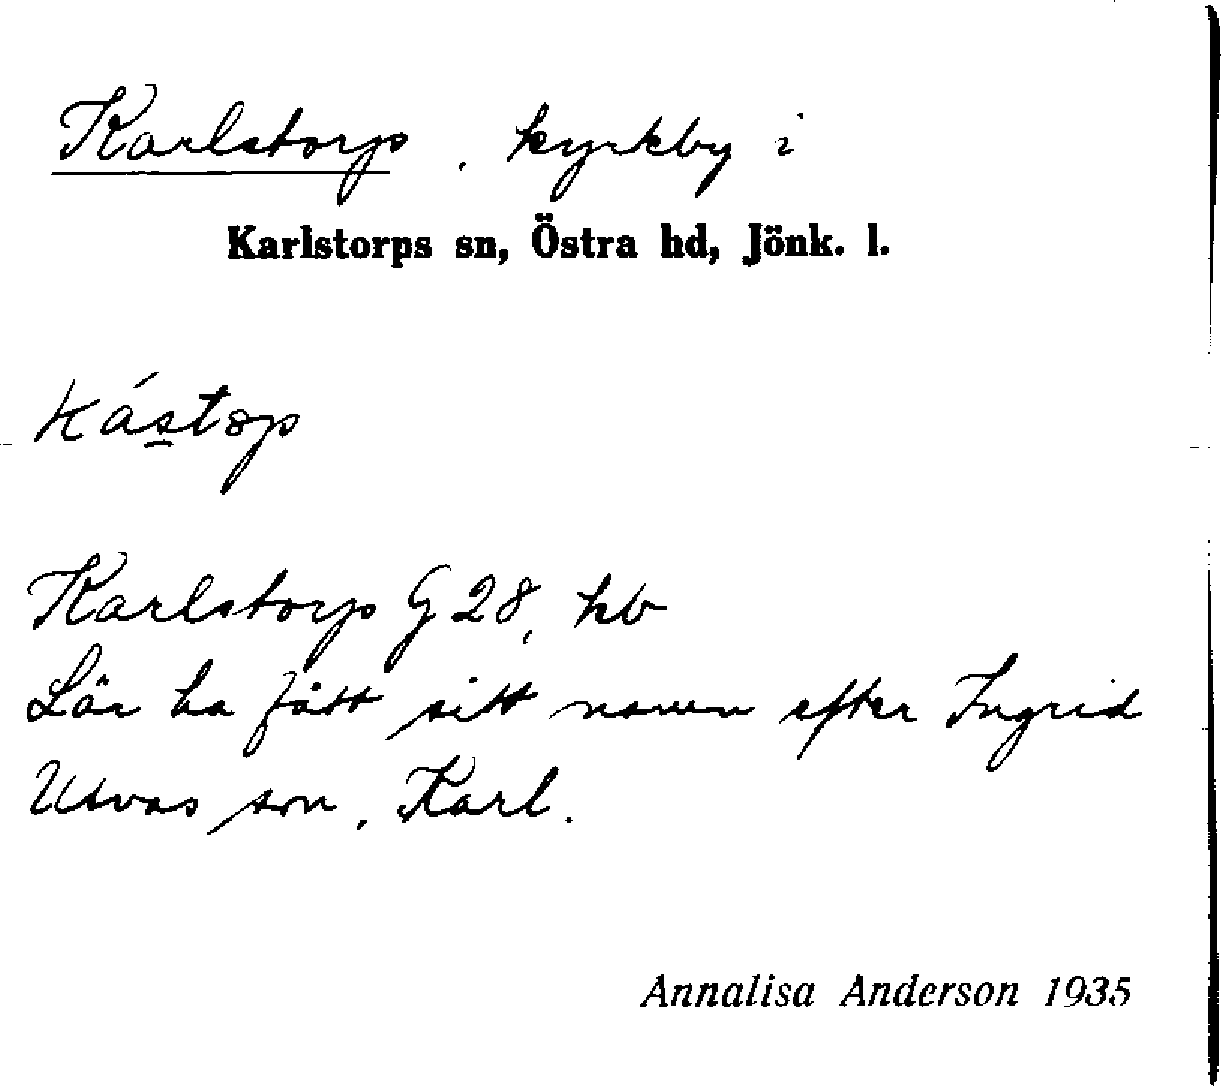 Karlstorp, kyrkby i
Karlstorps sn, Östra hd, Jönk. l.
kás̲tɵp
Karlstorp G 28, kb
Lär ha fått sitt namn efter Ingrid
Utvas son, Karl.
Annalisa Anderson 1935